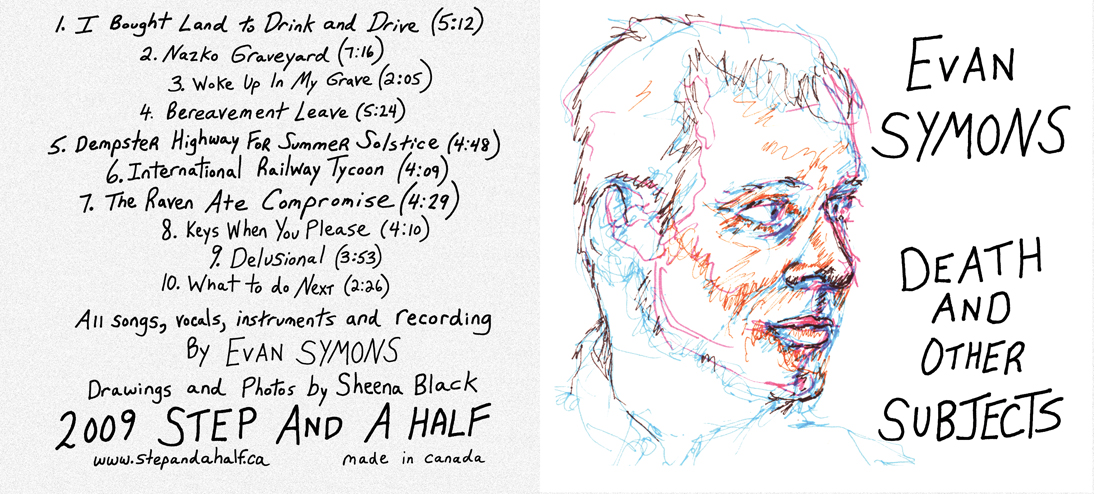 1. I Bought Land to Drink and Drive (5:12)
2. Nazko Graveyard (7:16)
3. Woke Up In My Grave (2:05)
4. Bereavement Leave (5:24)
5. Dempster Highway For Summer Solstice (4:48)
6. International Railway Tycoon (4:09)
7. The Raven Ate Compromise (4:29)
8. Keys When You Please (4:10)
9. Delusional (3:53)
10. What to do Next (2:26)
All songs, vocals, instruments and recording
By EVAN SYMONS
Drawings and Photos by Sheena Black
2009 STEP AND A HALF
www.stepandahalf.ca made in canada
EVAN
SYMONS
DEATH
AND
OTHER
SUBJECTS